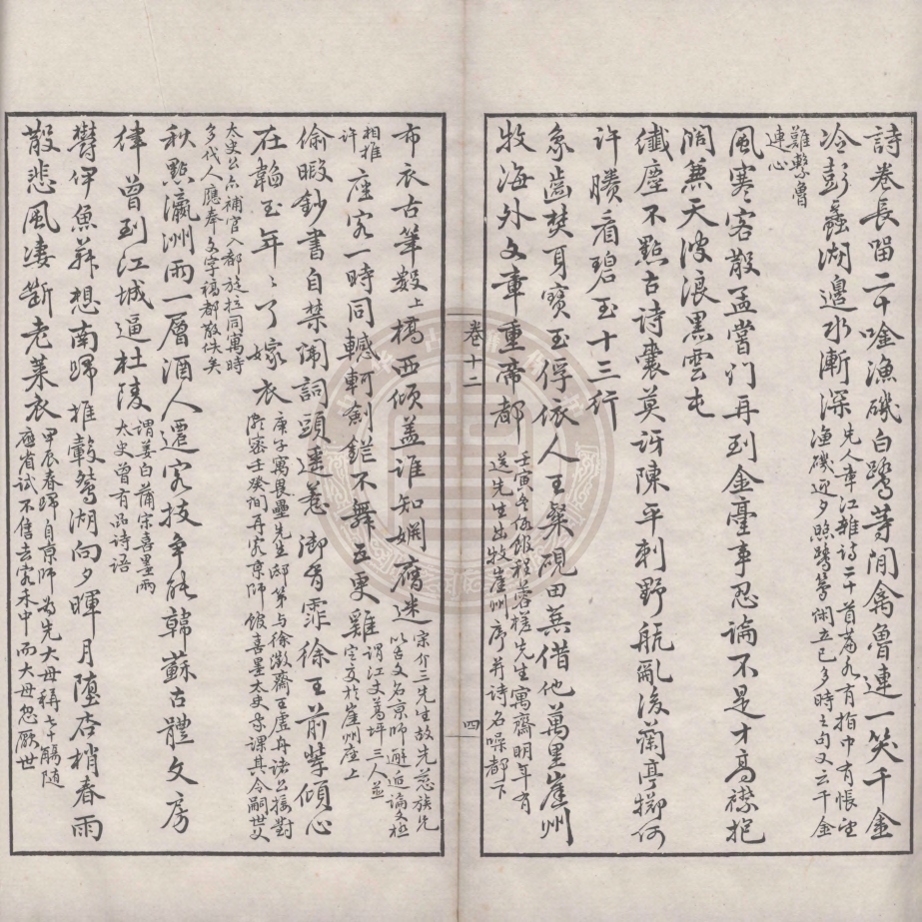 詩卷長留二十唫漁磯白鷺等閒禽魯連一笑千金
冷彭蠡湖邊水漸深先人章江雜詩二十首蓋有有指中有悵望
漁磯迎夕照鷺鷥閒立已多時之句又云千金
難繫魯
連心
風寒客散孟嘗门再到金臺事忍論不是才高襟抱
闊兼天波浪黑雲屯
纖塵不點古詩囊莫訝陳平刺野航亂後蘭亭擲何
许賸看碧玉十三行
象齒焚身寶玉俘依人王粲硯田蕪借他萬里崖州
牧海外文章重帝都壬寅冬偽館程蓉槎先生寓齋明年有
送先生出牧崖州序并詩名噪都下
卷十二
四
布衣古筆數上橋西傾盖誰知嫻膺迷宗介三先生故先慈族兄
以古文名京師邂逅論文極
相推
许
座客一時同轗軻劍鎧不舞五更雞謂江丈萬坪三人並
定交於崖州座上
偷暇鈔書自禁闹詞頭遥惹御香霏徐王前輩傾心
在鞠玉年〻了嫁衣庚子寓畏壘先生邸第与徐澂齋王虚舟诸公接對
殊密壬癸間再客京師館喜墨太史家課其令嗣世父
太史公亦補官入都旋拉同寓時
多代人應奉文字稿都散佚矣
秋點瀛洲雨一層酒人遷客技争能韓蘇古體文房
律曾到江城逼杜陵謂姜白蒲宗喜墨兩
太史曾有品诗语
欝伊魚葬想南歸推轂鵞湖向夕暉月墮杏梢春雨
散悲風凄斷老莱衣甲辰春歸自京師为先大母稱七十觞随
應省試不售去客禾中而大母忽厭世